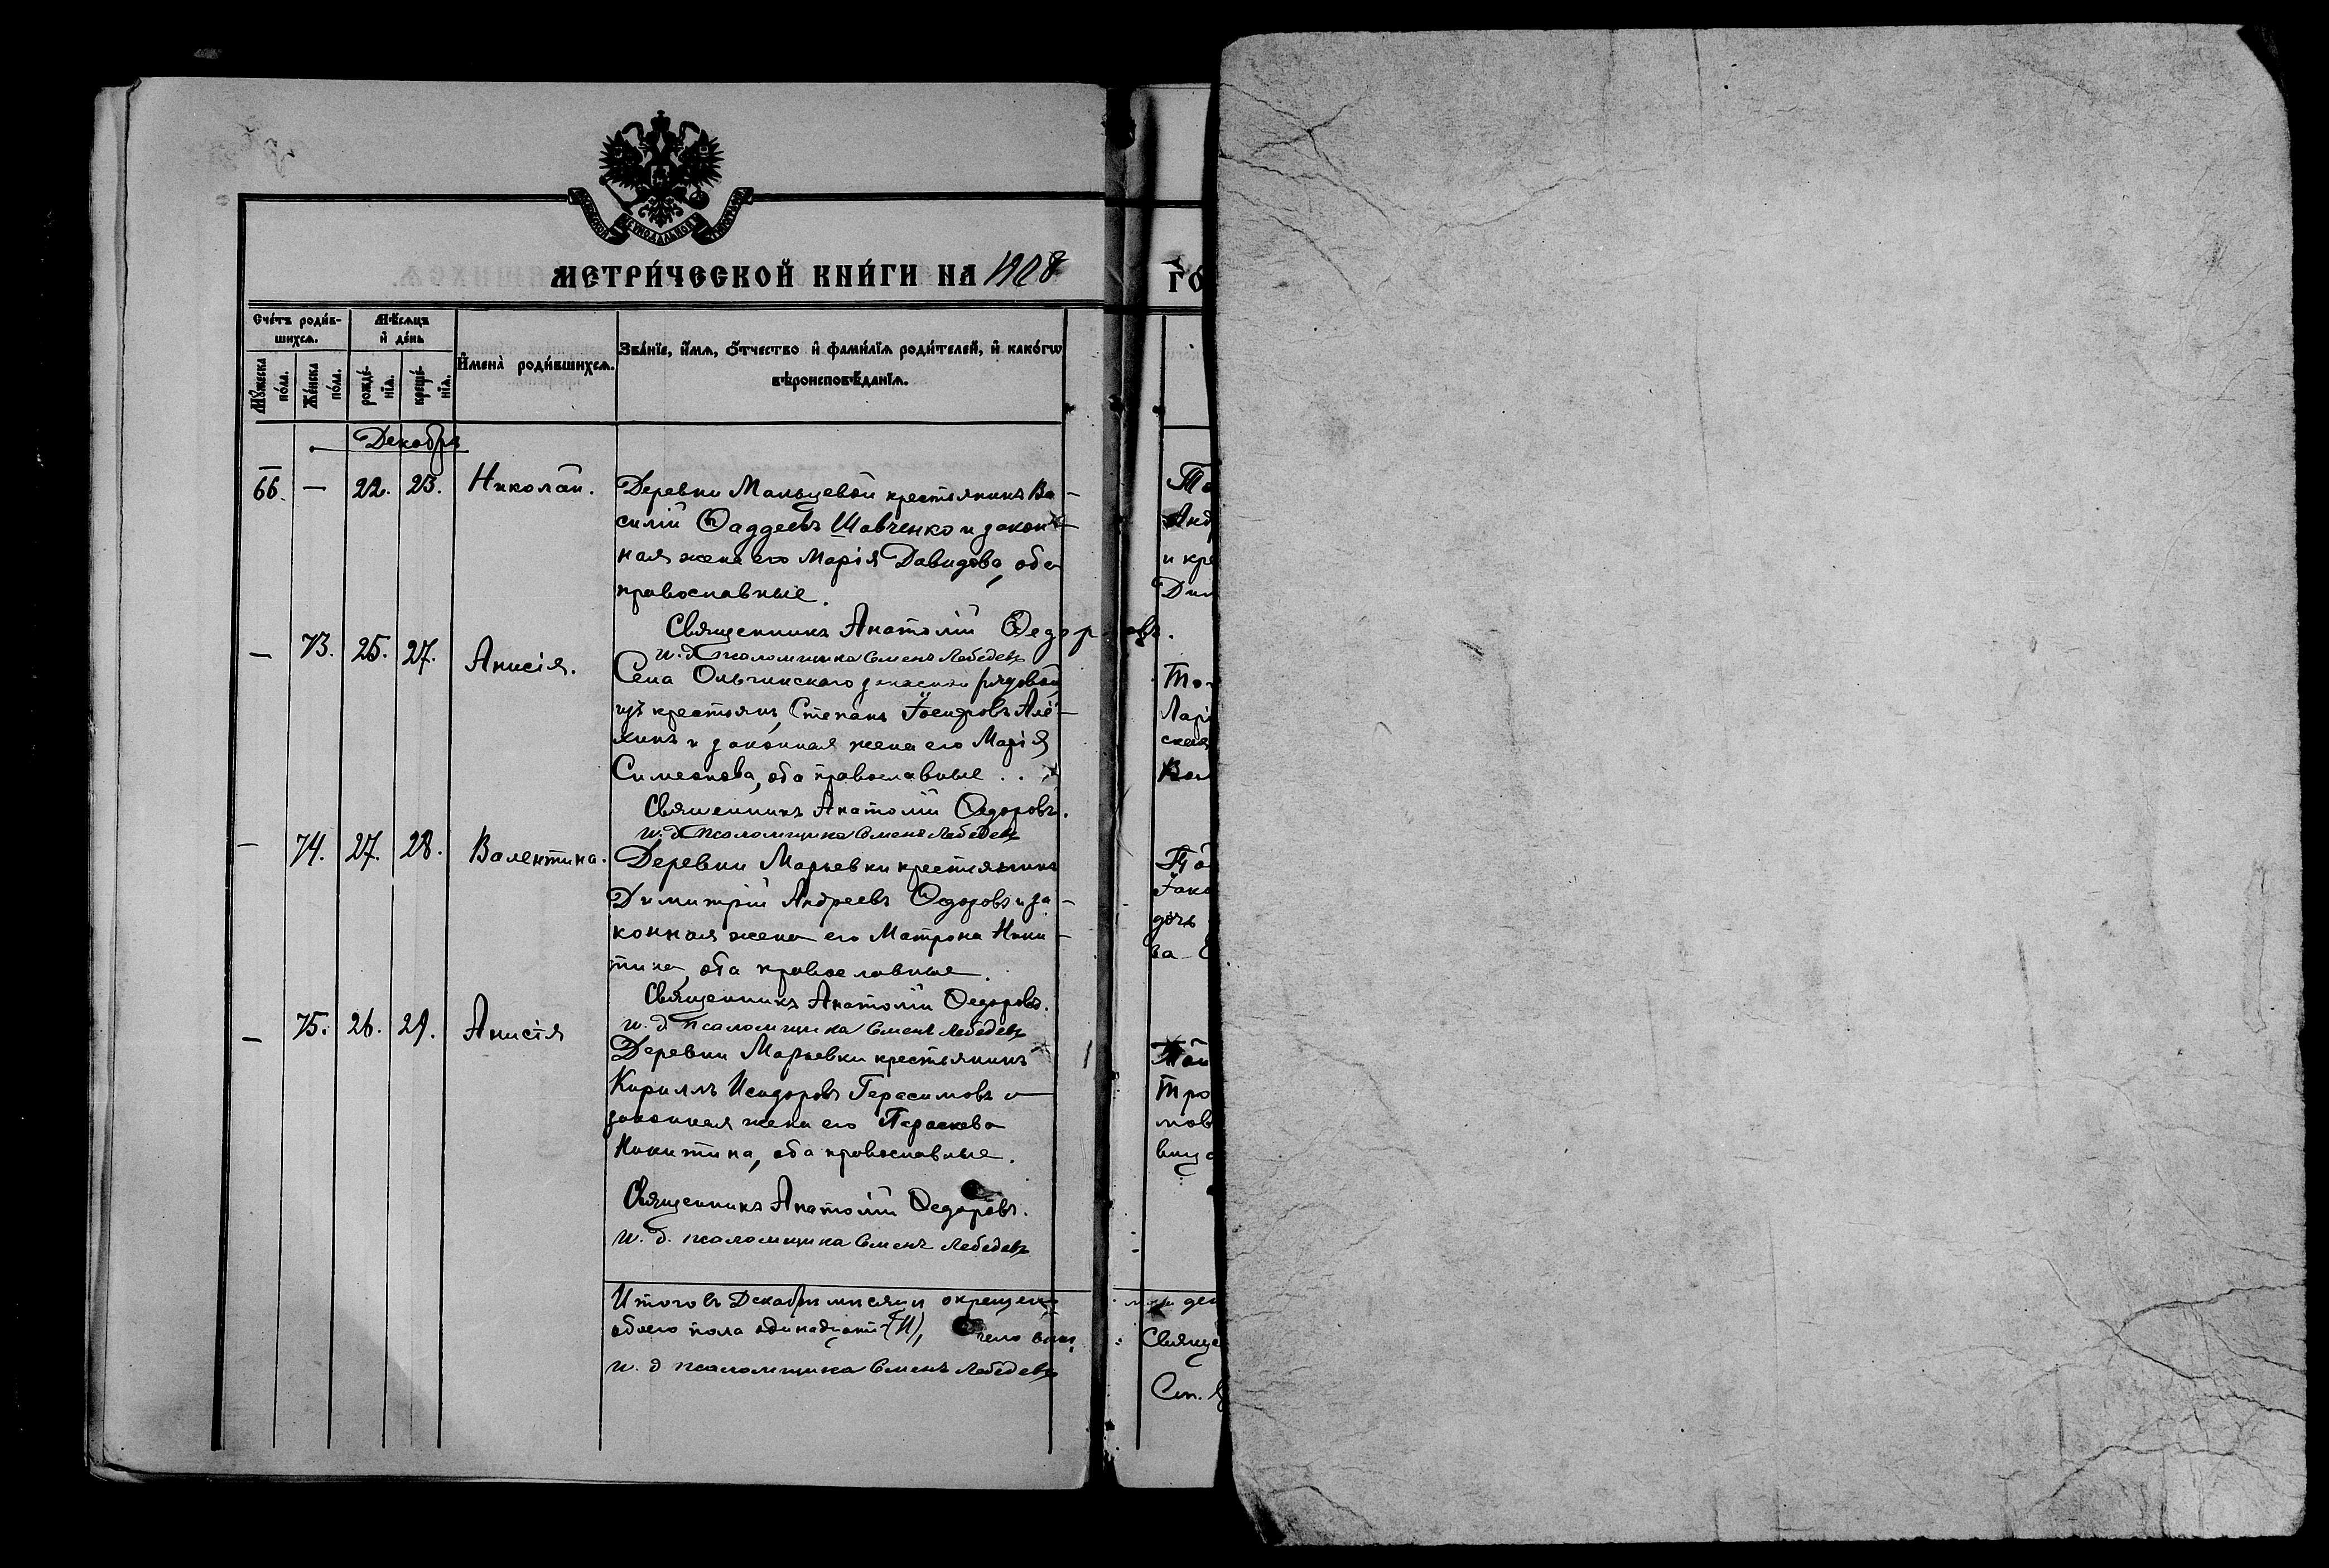 МЕТРИ́ЧЕСКОЙ КНИ́ГИ НА 1908
Счéтъ роди́в-
шихсѧ.
Мѣ́сѧцъ
и҆ дéнь
И҆менà роди́вшихсѧ.
Звáнїе, и҆́мѧ, ѻ҆́тчество и҆ фами́лїѧ роди́телей, и҆ какóгѡ
вѣроисповѣ́данїѧ.
Мꙋ́жеска
пóла.
Жéнска
пóла.
рождé-
нїѧ.
крещé-
нїѧ.
Декабрь
66. — 22. 23. Николай.
Деревни Мальцевой крестьянинъ Ва-
силій Ѳаддеевъ Шавченко и закон-
ная жена его Марія Давидова, оба
православные.
Священникъ Анатолій Ѳедоровъ.
и. д. псаломщика Семенъ Лебедевъ
— 73. 25. 27. Анисія.
Села Ольгинскаго запасной рядовой
изъ крестьянъ, Степанъ Іосифовъ Алё-
хинъ и законная жена его Марія
Симеонова, оба православные.
Священникъ Анатолій Ѳедоровъ.
и. д. псаломщика Семенъ Лебедевъ
— 74. 27. 28. Валентина.
Деревни Марьевки крестьянинъ
Димитрій Андреевъ Ѳедоровъ и за-
конная жена его Матрона Ники-
тина, оба православные.
Священникъ Анатолій Ѳедоровъ.
и. д. псаломщика Семенъ Лебедевъ
— 75. 26. 29. Анисія
Деревни Марьевки крестьянинъ
Кириллъ Исидоровъ Герасимовъ и
законная жена его Параскева
Никитина, оба православные.
Священникъ Анатолій Ѳедоровъ.
и. д. псаломщика Семенъ Лебедевъ
Итого въ Декабрѣ мѣсяцѣ окрещено
обоего пола одинадцать (11),
и. д псаломщика Семенъ Лебедевъ